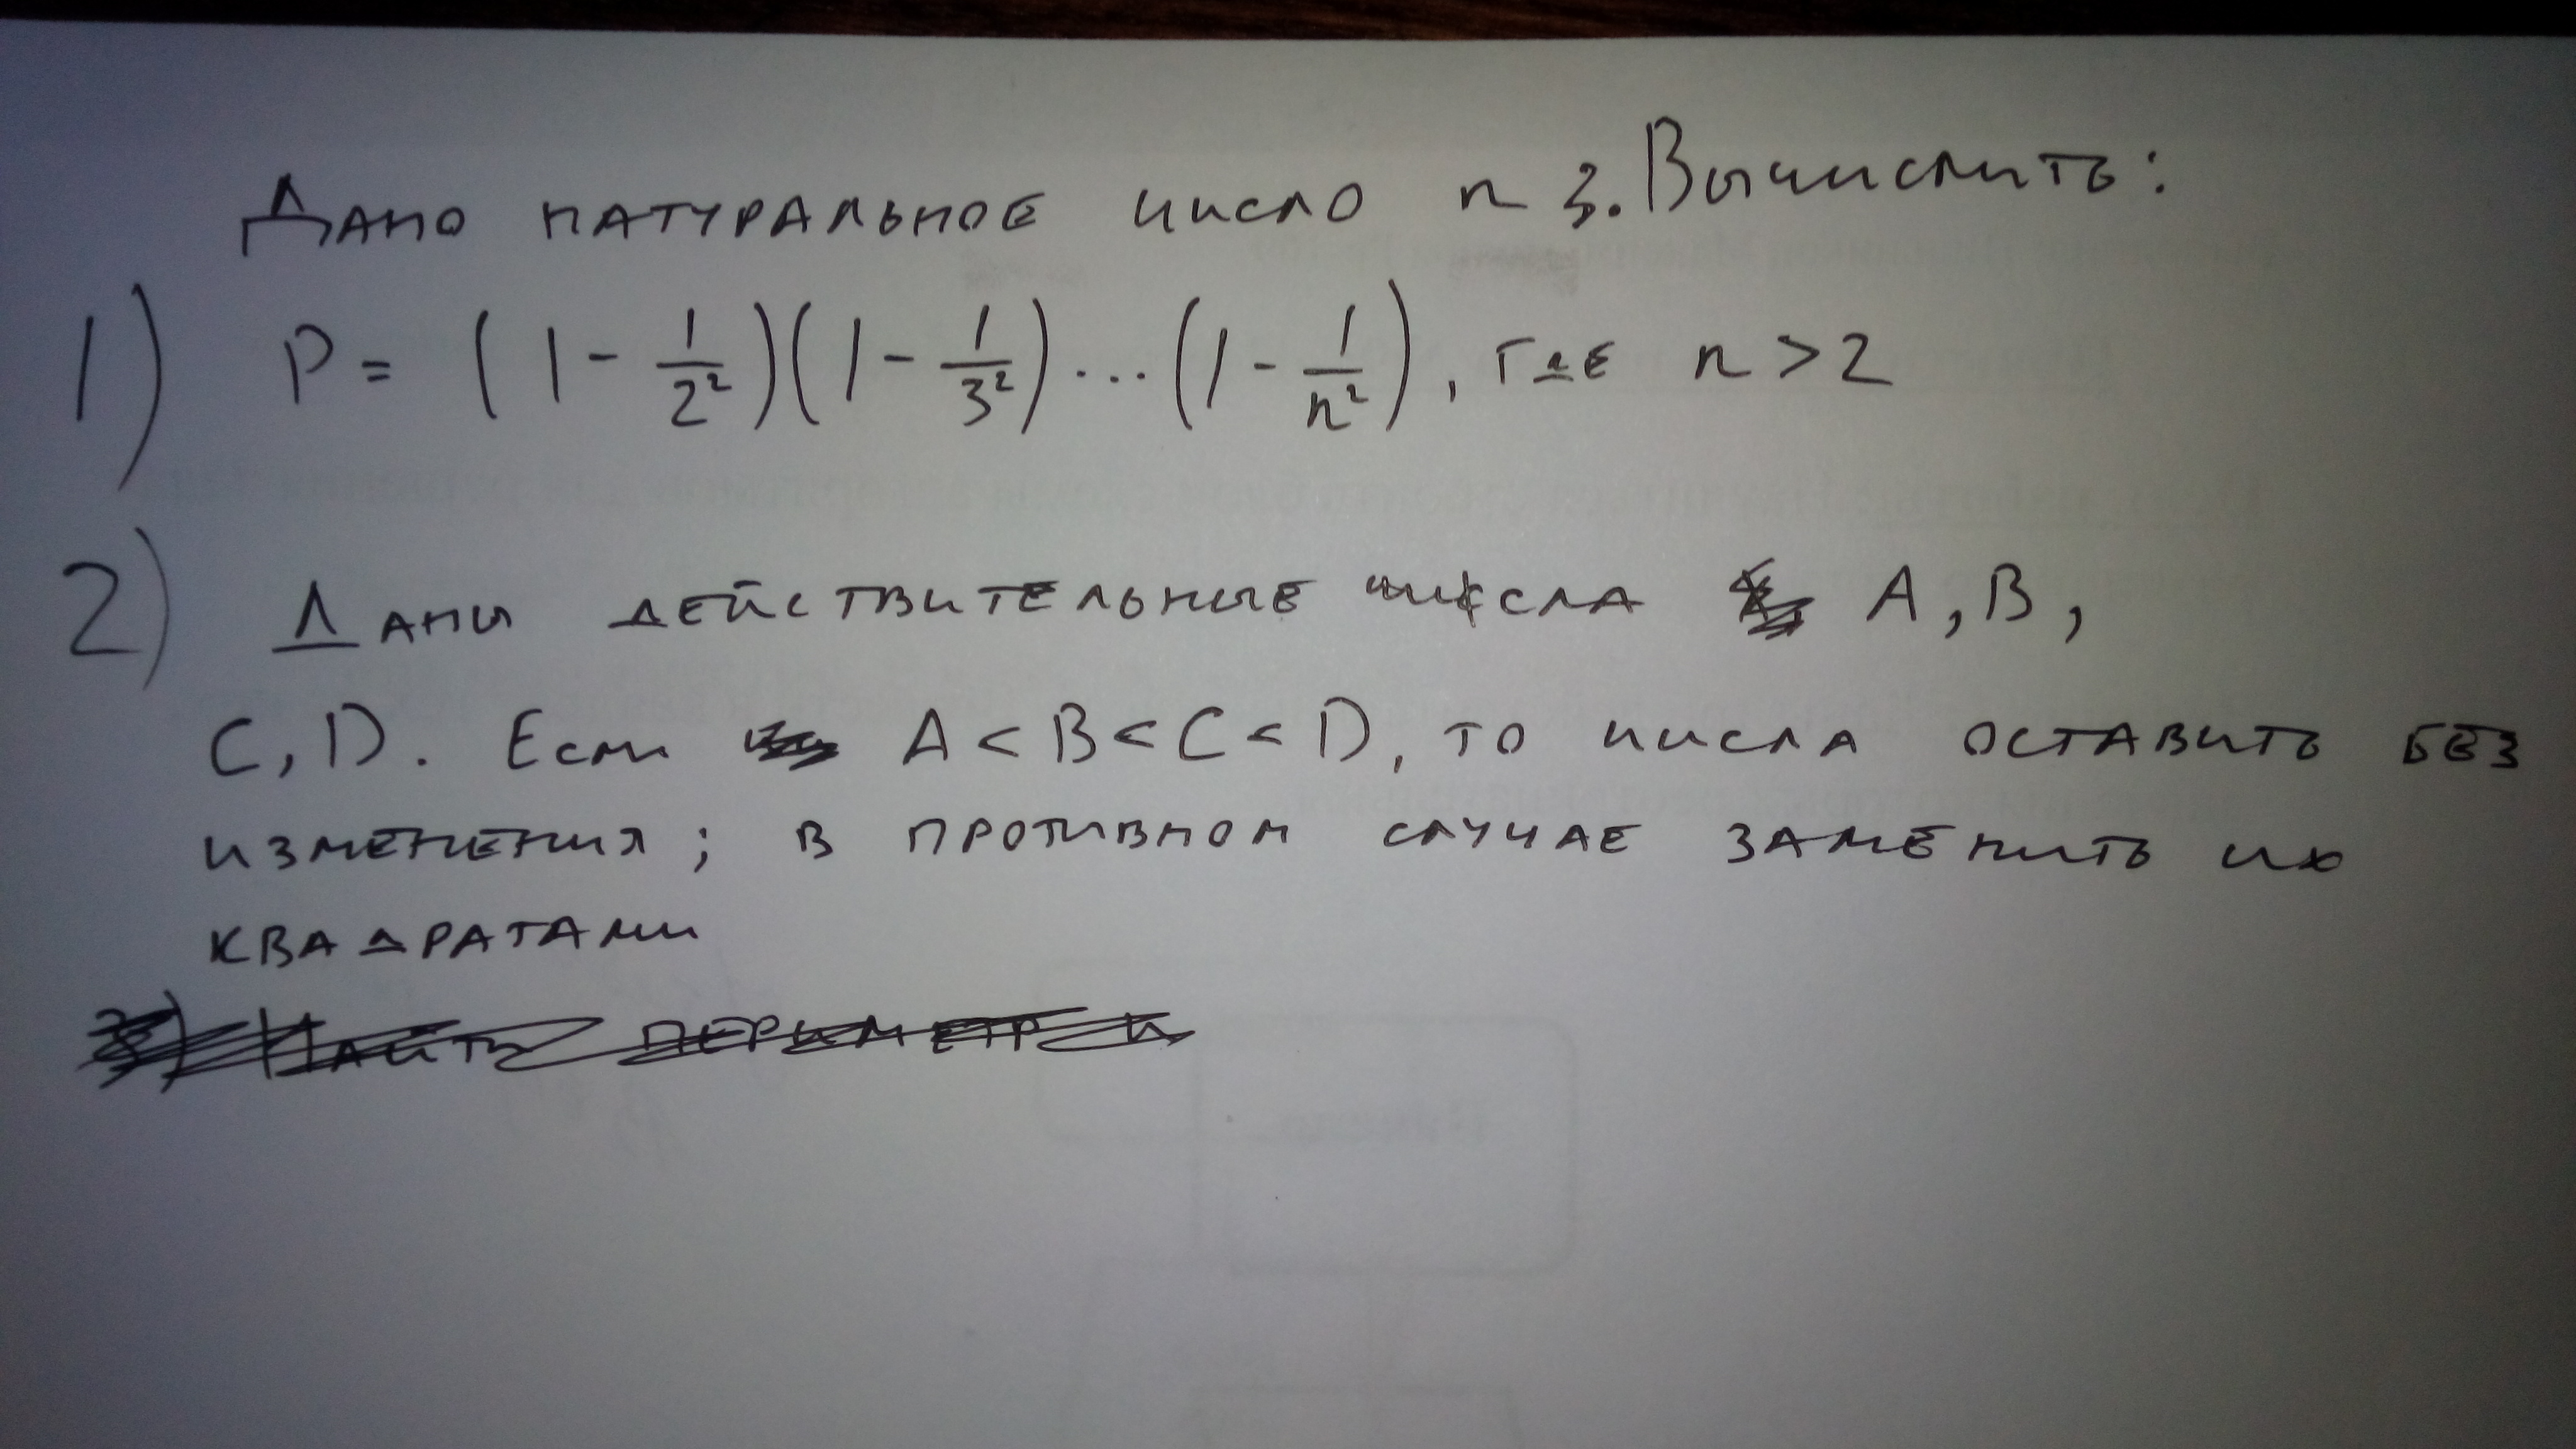 Дано натуральное число n 3. Вычислить:
1) P = (1 - 1/2²)(1 - 1/3²)...(1 - 1/n²), где n > 2
2) Даны действительные числа A, B,
C, D. Если A < B < C < D, то числа оставить без
изменения; в противном случае заменить их
квадратами
3) Найти периметр и